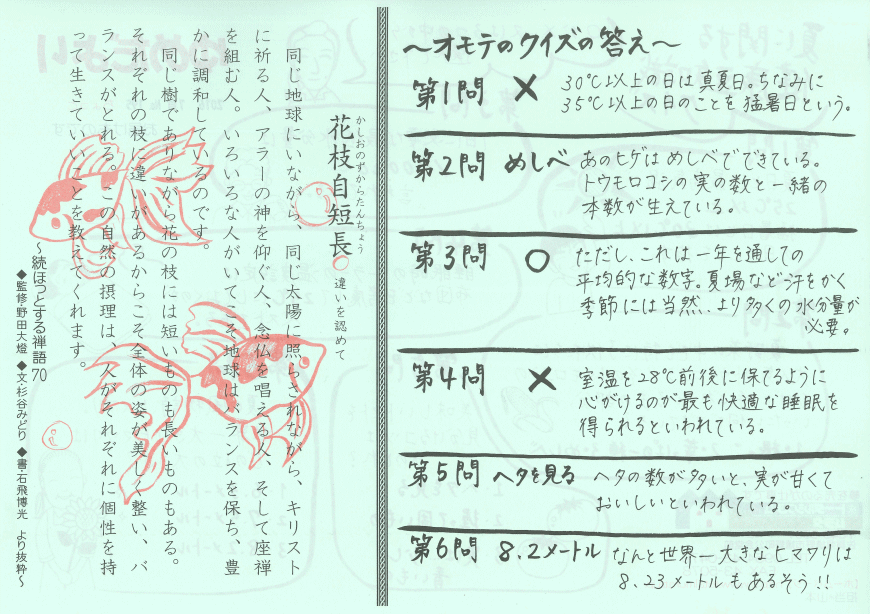 ～オモテのクイズの答え～
第1問 × 30℃以上の日は真夏日。ちなみに
35℃以上の日のことを猛暑日という。
第2問 めしべ あのヒゲはめしべでできている。
トウモロコシの実の数と一緒の
本数が生えている。
第3問 ○ ただし、これは一年を通しての
平均的な数字。夏場など汗をかく
季節には当然、より多くの水分量が
必要。
第4問 × 室温を28℃前後に保てるように
心がけるのが最も快適な睡眠を
得られるといわれている。
第5問 ヘタを見る ヘタの数が多いと、実が甘くて
おいしいといわれている。
第6問 8.2メートル なんと世界一大きなヒマワリは
8.23メートルもあるそう!!
かしおのずからたんちょう
花枝自短長 違いを認めて
同じ地球にいながら、同じ太陽に照らされながら、キリスト
に祈る人、アラーの神を仰ぐ人、念仏を唱える人、そして座禅
を組む人。いろいろな人がいてこそ地球はバランスを保ち、豊
かに調和しているのです。
同じ樹でありながら花の枝には短いものも長いものもある。
それぞれの枝に違いがあるからこそ全体の姿が美しく整い、バ
ランスがとれる。この自然の摂理は、人がそれぞれに個性を持
って生きていいことを教えてくれます。
～続ほっとする禅語70
◆監修・野田大燈 ◆文・杉谷みどり ◆書・石飛博光 より抜粋～